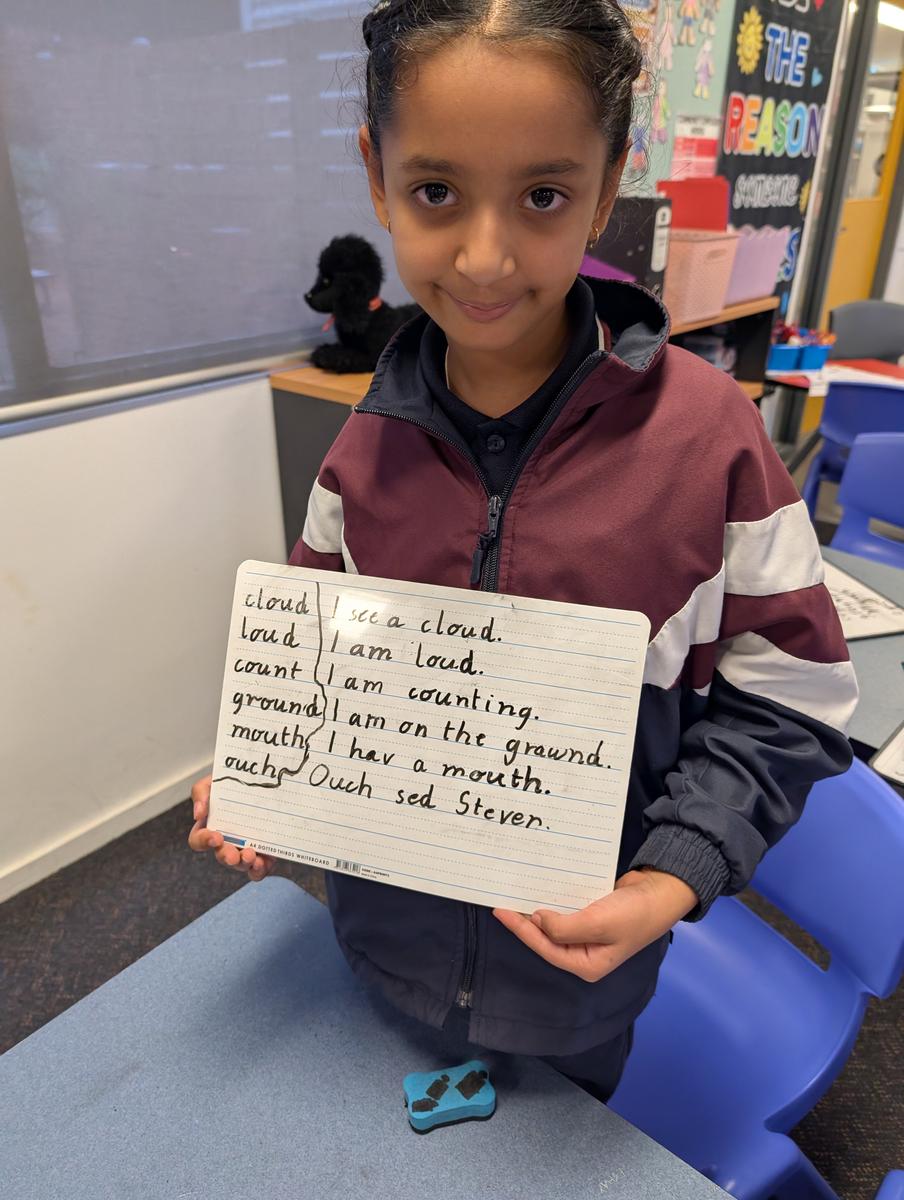 THE
REASON
cloud I see a cloud.
loud I am loud.
count I am counting.
ground I am on the grawnd.
mouth I hav a mouth.
ouch Ouch sed Steven.
A4 DOTTED THIRDS WHITEBOARD